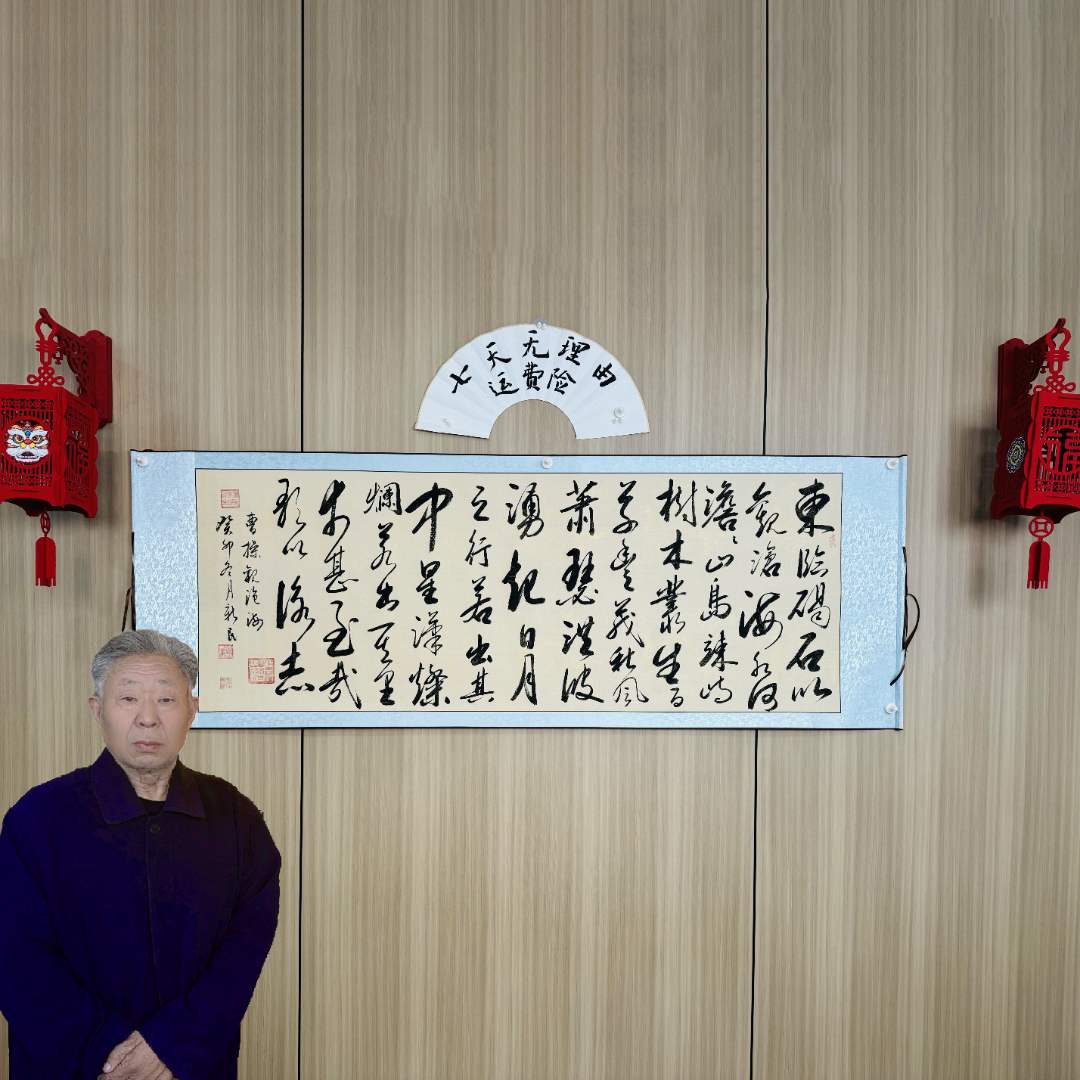 七天无理由
运费险
東臨碣石以
觀滄海水何
澹々山島竦峙
樹木叢生百
草豐茂秋風
蕭瑟洪波
湧起日月
之行若出其
中星漢燦
爛若出其里
幸甚至哉
歌以詠志
曹操觀滄海
癸卯冬月新民
福